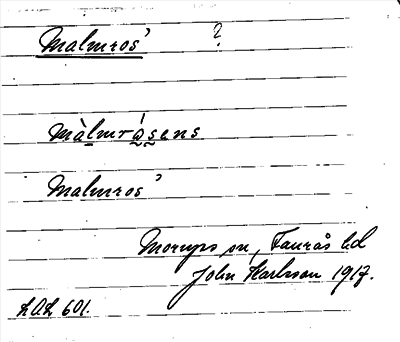 Malmros' ?
màlmrásens
Malmros'
Morups sn, Faurås hd
John Karlsson 1917.
LAL 601.